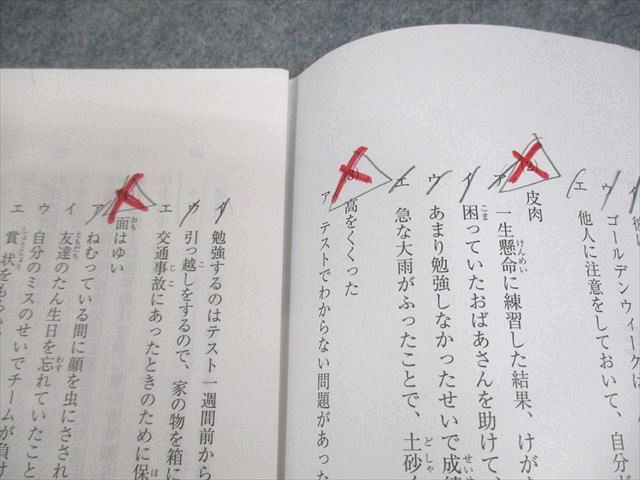 ゴールデンウィークは
エ 他人に注意をしておいて、自分が
(2) 皮肉
ア 一生懸命に練習した結果、けが
イ 困っていたおばあさんを助けて、
ウ あまり勉強しなかったせいで成績
エ 急な大雨がふったことで、土砂く
(3) 高をくくった
ア テストでわからない問題があった
イ 勉強するのはテスト一週間前から
ウ 引っ越しをするので、家の物を箱に
エ 交通事故にあったときのために保
面はゆい
ア ねむっている間に顔を虫にさされ
イ 友達のたん生日を忘れていたこと
ウ 自分のミスのせいでチームが負け
エ 賞状をもらっ